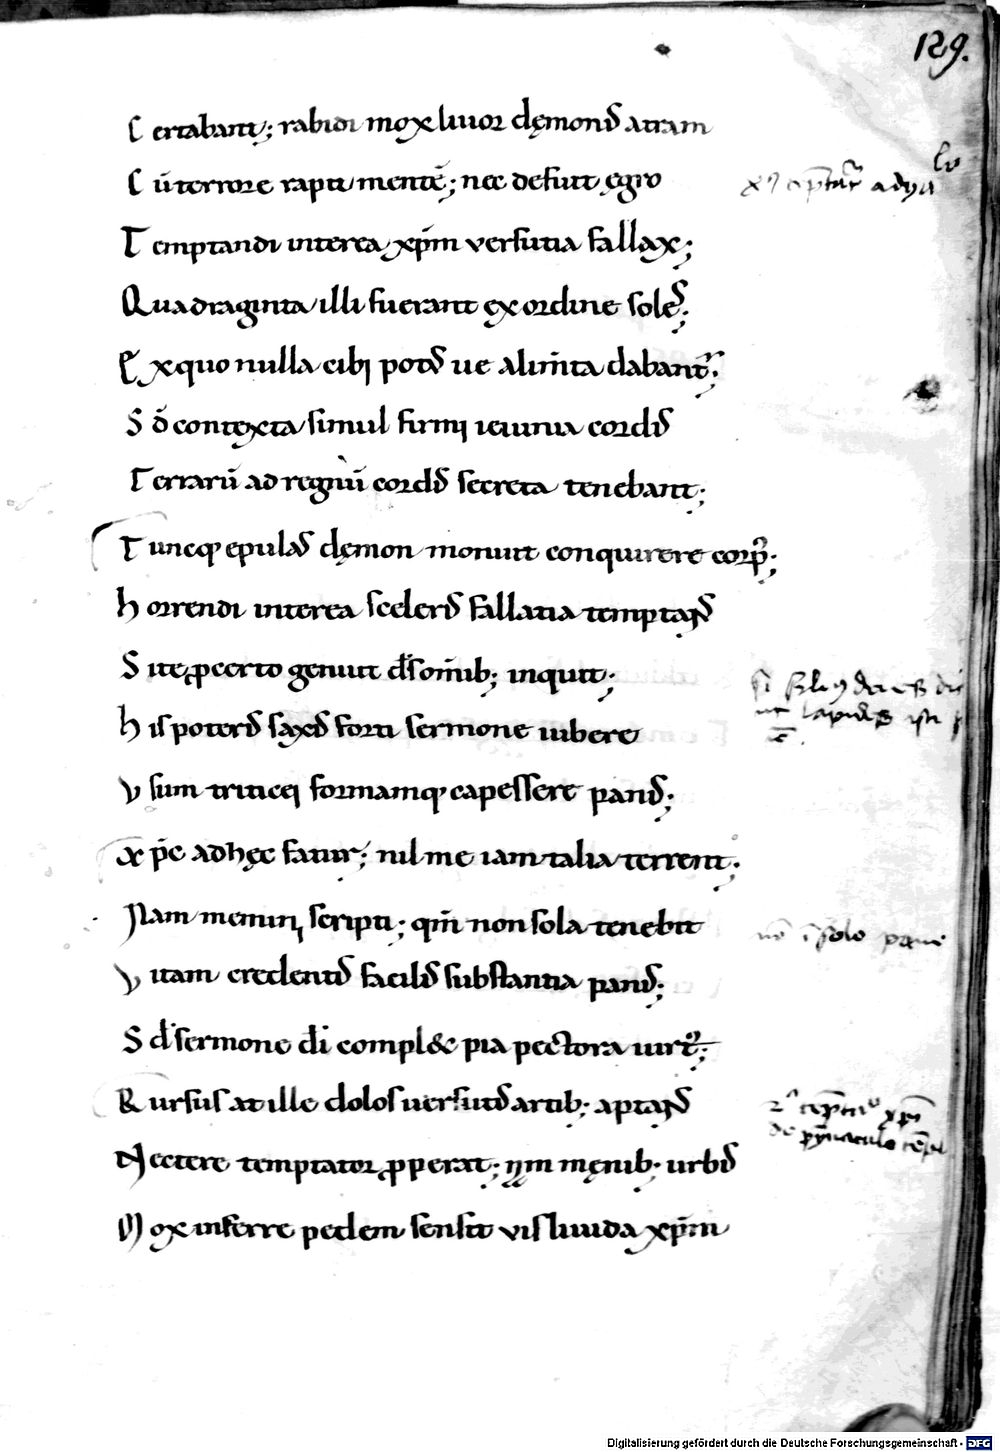 129.
Certabant; rabidi mox livor dęmonis atram
Cū terrore rapit mentē; nec defuit ęgro
Temptandi interea xp̄m versutia fallax;
Quadraginta illi fuerant ex ordine soles;
Ex quo nulla cibi potus ve alim̄ta dabant᷑;
S; contexta simul firmi ieiunia cordis
Terrarū ad regnū cordis secreta tenebant;
Tuncq; epulas dęmon monuit conquirere corp᷒;
Horrendi interea sceleris fallatia temptans
Si te ꝓ certo genuit d̄s om̄ib; inquit;
His poteris saxis forti sermone iubere
Vsum triticei formamq; capessere panis;
xp̄c adhęc fatur; nil me iam talia terrent;
Nam memini scripti; qm̄ non sola tenebit
Vitam credentis facilis substantia panis;
S; sermone d̄i compl& pia pectora uirt᷒;
Rursus at ille dolos uersutis artib; aptans
Nectere temptator ꝓperat; nam męnib; urbis
Mox inferre pedem sensit vis liuida xp̄m
solo pane
lapides isti
de pinnaculo
Digitalisierung gefördert durch die Deutsche Forschungsgemeinschaft - DFG